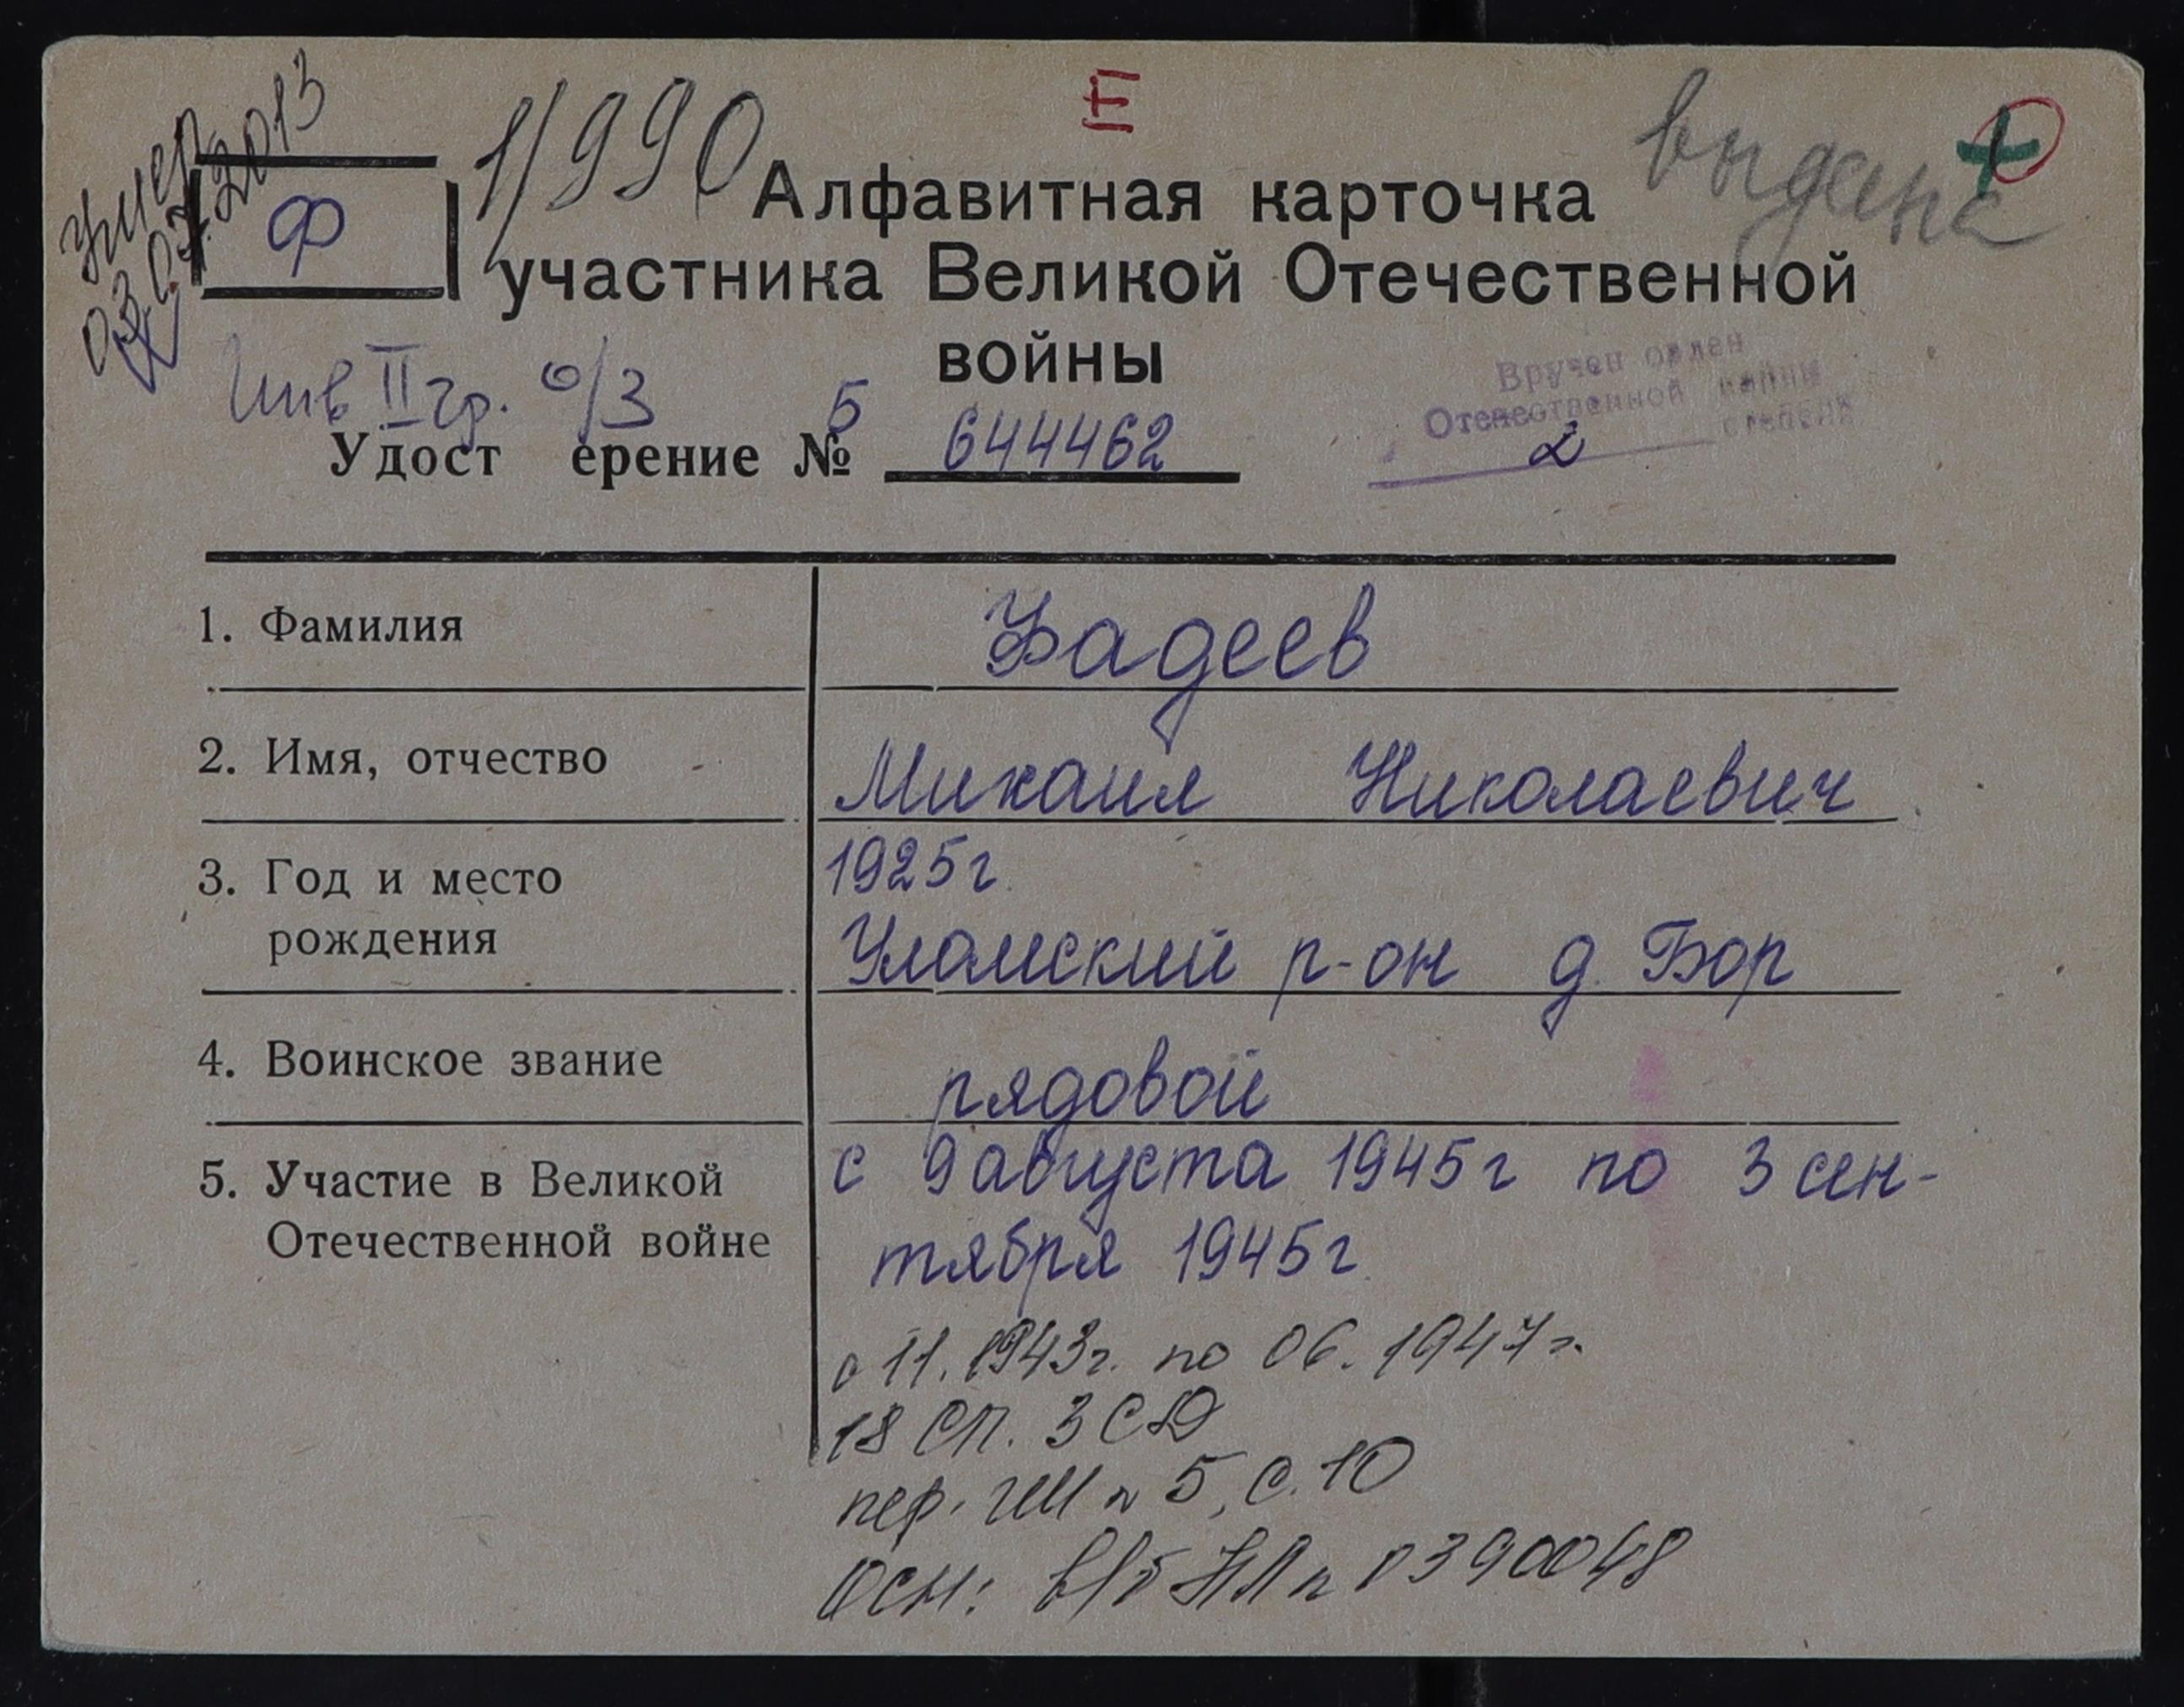 Умер
03.07.2013
Ф
1/990
Е
выдана
Алфавитная карточка
участника Великой Отечественной
войны
Инв II гр. о/з
Вручен орден
Отечественной войны
2 степени
Удост ерение № Б 644462
1. Фамилия
Фадеев
2. Имя, отчество
Михаил Николаевич
3. Год и место
рождения
1925г.
Уломский р-он д. Бор
4. Воинское звание
рядовой
5. Участие в Великой
Отечественной войне
с 9 августа 1945г по 3 сен-
тября 1945г.
с 11.1943г. по 06.1947г.
18 СП. 3 СД
пер. ГШ n 5, с. 10
Осн: в/б НЛ n 0390048